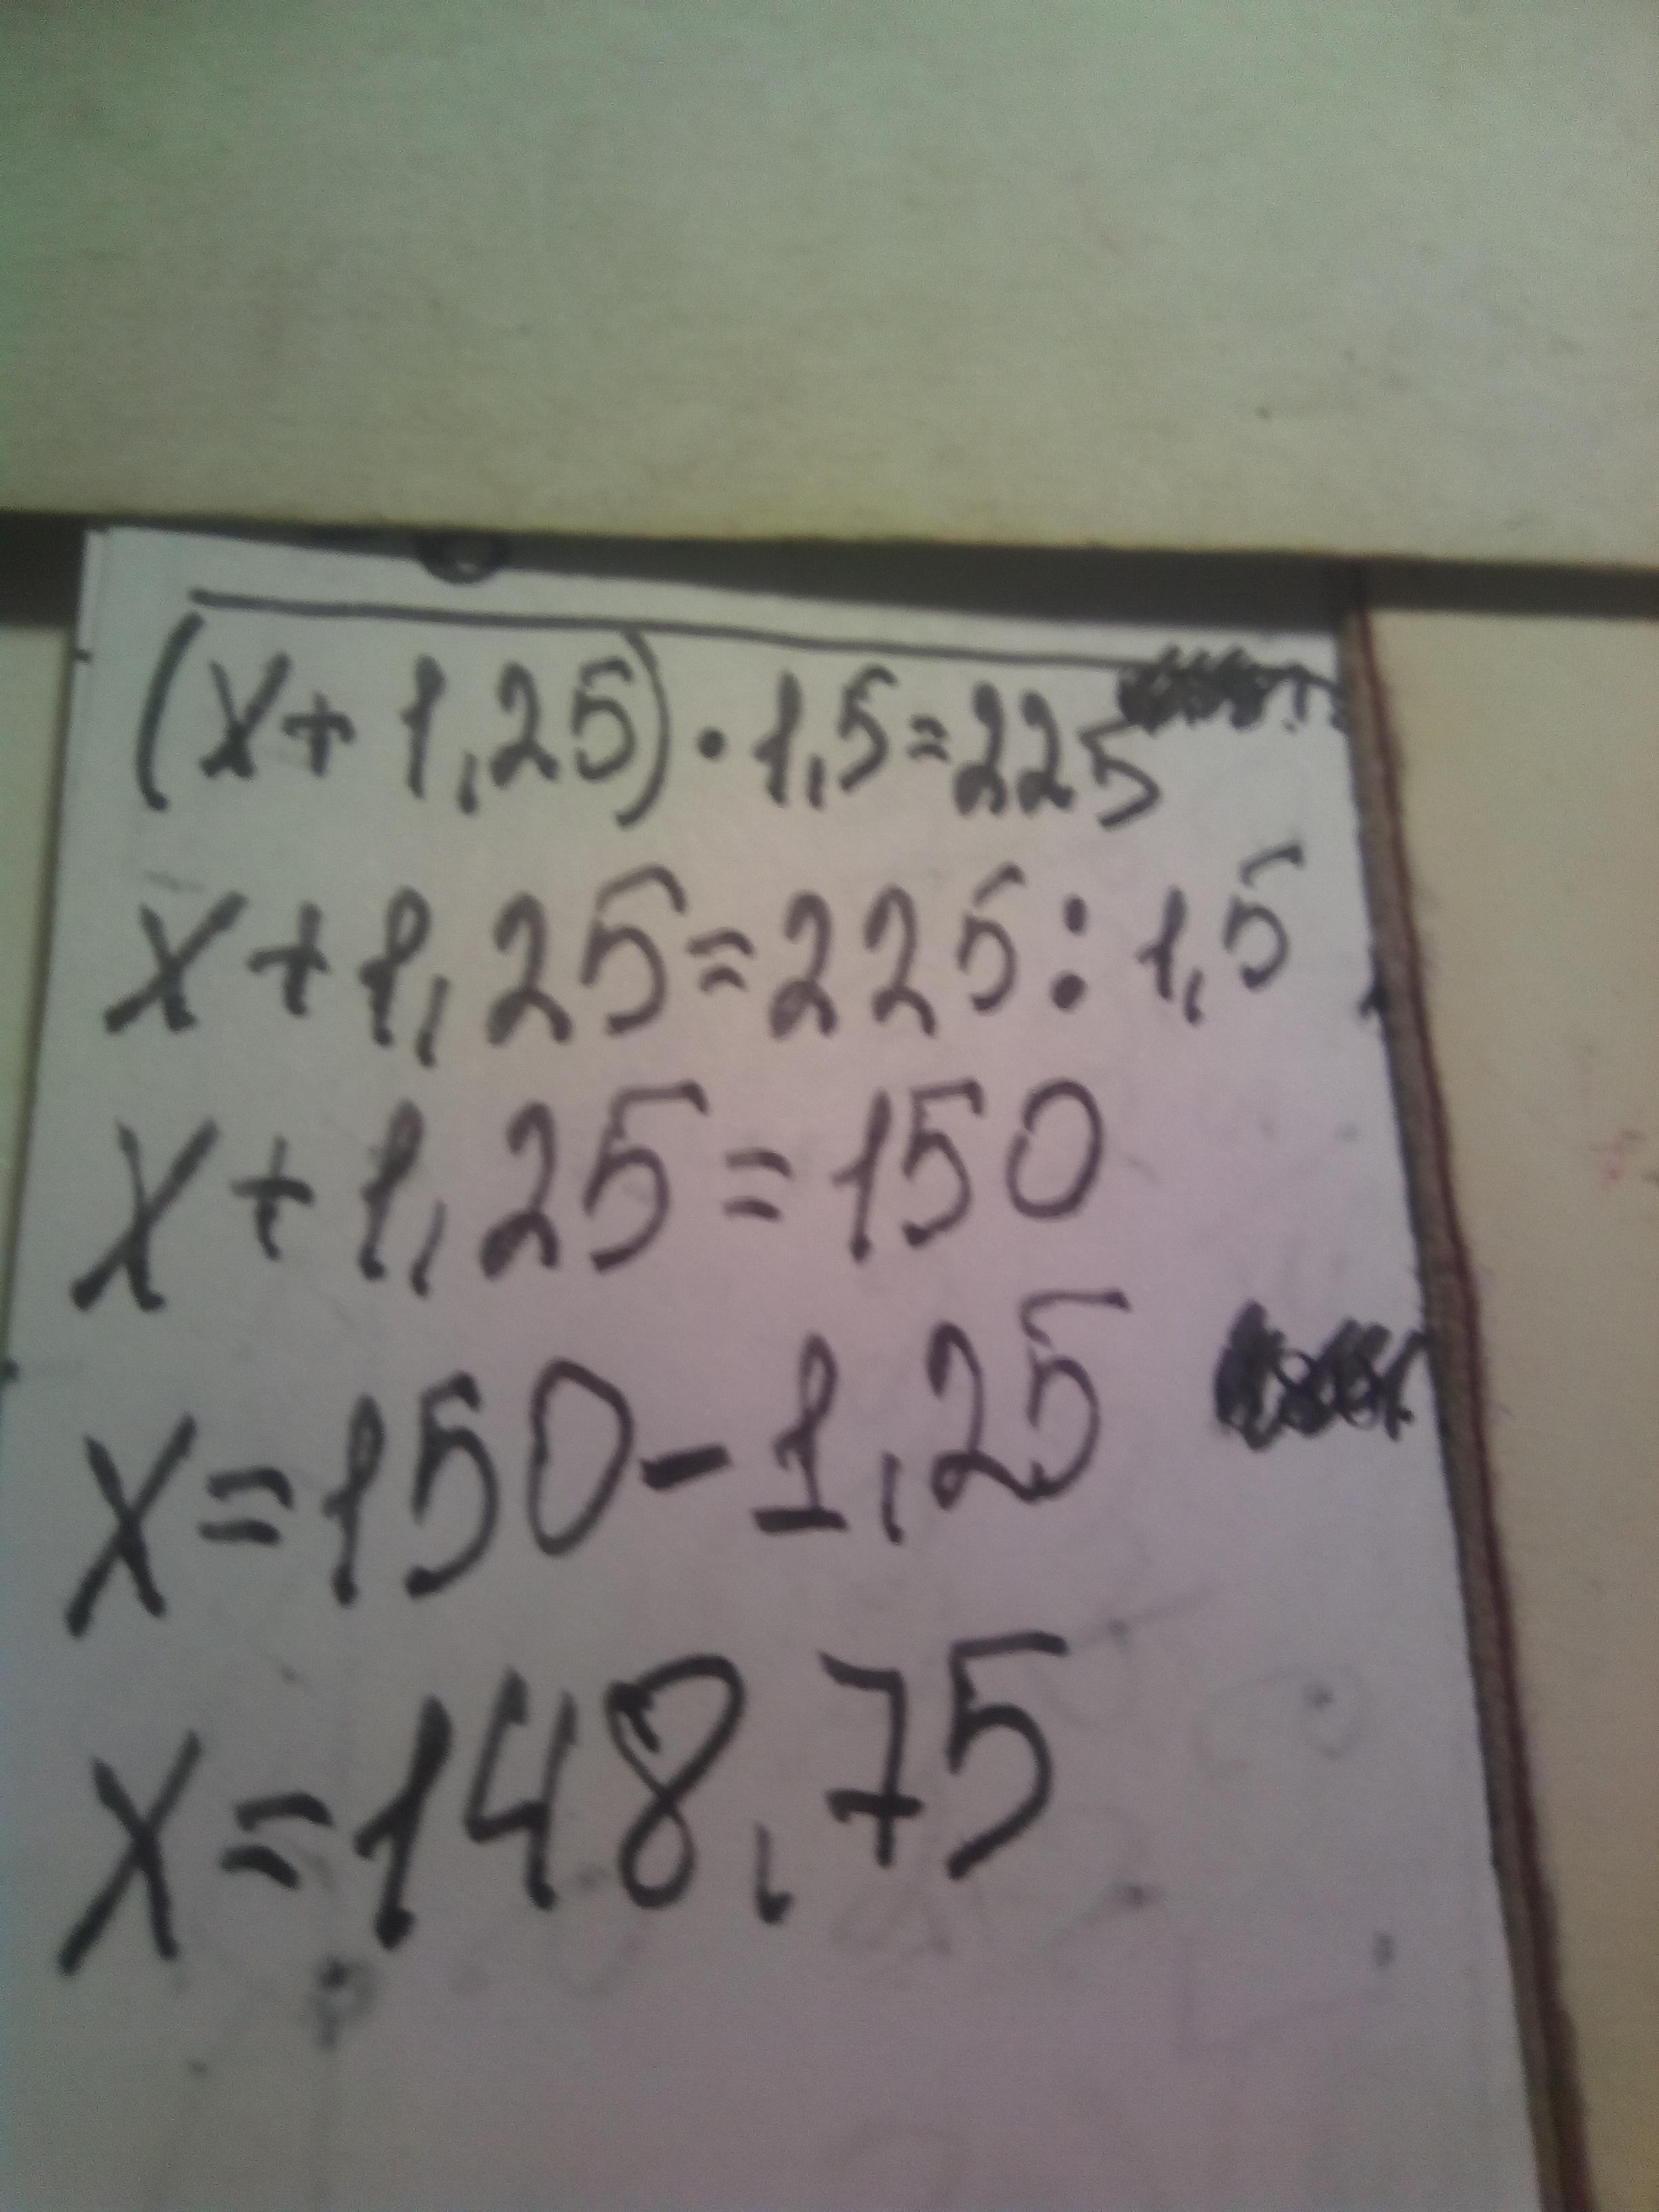 (x+1,25)·1,5=225
x+1,25=225:1,5
x+1,25=150
x=150-1,25
x=148,75